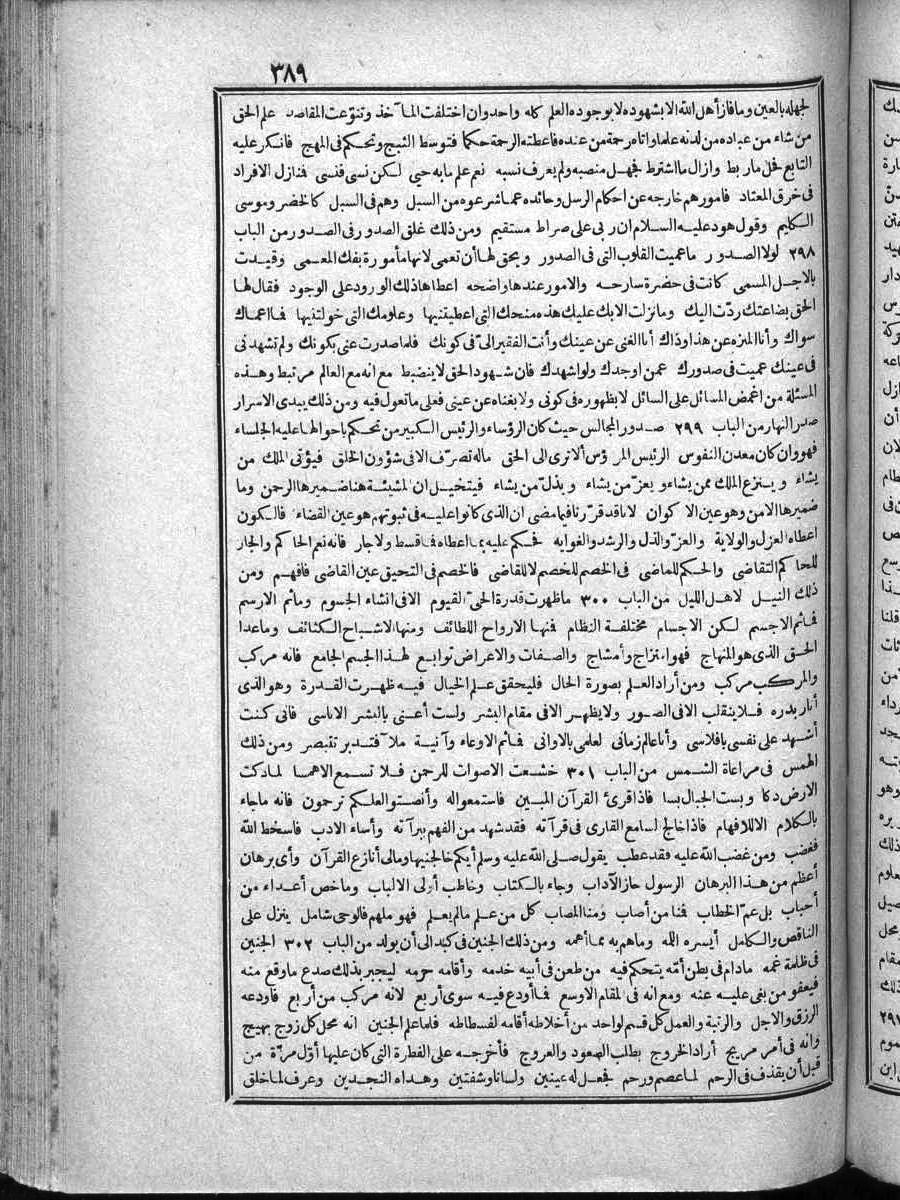 ٣٨٩
لجهله بالعين وما فاز أهل الله الا بشهوده لا بوجوده العلم كله واحد وان اختلفت المآخذ وتنوّعت المقاصد علم الحق
من شاء من عباده من لدنه علما وآتاه رحمة من عنده فاعطته الرحمة حكما فتوسط الثبج وتحكم في المهج فانكر عليه
التابع فحل ما ربط وازال ما اشترط فجهل منصبه ولم يعرف نسبه نعم علم ما به حيي لكن نسى فنسى فنازل الافراد
فى خرق المعتاد فامورهم خارجه عن احكام الرسل وحائده عما شرعوه من السبل وهم فى السبل كالخضر وموسى
الكليم وقول هود عليه السلام ان ربى على صراط مستقيم ومن ذلك غلق الصدور فى الصدور من الباب
٢٩٨ لولا الصدور ما عميت القلوب التى فى الصدور ويحق لها أن تعمى لانها مأمورة بفك المعمى وقيدت
بالاجل المسمى كانت فى حضرة سارحه والامور عندها واضحه اعطاها ذلك الورود على الوجود فقال لها
الحق بضاعتك ردّت اليك وما نزلت الا بك عليك هذه منحك التى اعطيتنيها وعلومك التى خولتنيها فما اعماك
سواك وأنا المنزه عن هذا وذاك أنا الغنى عن عينك وأنت الفقير الىّ فى كونك فلما صدرت عنى بكونك ولم تشهدنى
فى عينك عميت فى صدورك عمن اوجدك ولو اشهدك فان شهود الحق لا ينضبط مع انه مع العالم مرتبط وهذه
المسئلة من اغمض المسائل على السائل لا بظهوره فى كونى ولا بغناه عن عينى فعلى ما تعول فيه ومن ذلك يبدى الاسرار
صدر النهار من الباب ٢٩٩ صدور المجالس حيث كان الرؤساء والرئيس الكبير من تحكم باحوالها عليه الجلساء
فهو وان كان معدن النفوس الرئيس المرؤس ألا ترى الى الحق ماله تصرّف الا فى شؤون الخلق فيؤتى الملك من
يشاء وينزع الملك ممن يشاء ويعز من يشاء ويذلّ من يشاء فيتخيل ان المشيئة هنا ضميرها الرحمن وما
ضميرها الا من وهو عين الاكوان لاناقد قرّرنا فيما مضى ان الذى كانوا عليه فى ثبوتهم هو عين القضاء فالكون
اعطاه العزل والولاية والعز والذل والرشد والغوايه فحكم عليه بما اعطاه فما قسط ولا جار فانه نعم الحاكم والجار
للحاكم التقاضى والحكم للماضى فى الخصم للخصم لا للقاضى فالخصم فى التحيق عين القاضى فافهم ومن
ذلك النيل لاهل الليل من الباب ٣٠٠ ما ظهرت قدرة الحىّ القيوم الا فى انشاء الجسوم وما ثم الا رسم
فما ثم الا جسم لكن الاجسام مختلفة النظام فمنها الارواح اللطائف ومنها الاشباح الكثائف وماعدا
الحق الذى هو المنهاج فهو امتزاج وأمشاج والصفات والاعراض توابع لهذا الجسم الجامع فانه مركب
والمركب مركب ومن أراد العلم بصورة الحال فليحقق علم الخيال فيه ظهرت القدرة وهو الذى
أنار بدره فلا ينقلب الا فى الصور ولا يظهر الا فى مقام البشر ولست أعنى بالبشر الاناسى فانى كنت
أشهد على نفسى بافلاسى وأنا عالم زمانى لعلمى بالاوانى فما ثم الا وعاء وآنية ملآ فتدبر تتبصر ومن ذلك
الهمس فى مراعاة الشمس من الباب ٣٠١ خشعت الاصوات للرحمن فلا تسمع الا همسا لما دكت
الارض دكا وبست الجبال بسا فاذا قرئ القرآن المبين فاستمعوا له وأنصتوا لعلكم ترحمون فانه ما جاء
بالكلام الا للافهام فاذا خالج السامع القارى فى قرآنه فقد شهد من الفهم ببرآته وأساء الادب فاسخط الله
فغضب ومن غضب الله عليه فقد عطب يقول صلى الله عليه وسلم أيكم خالجنيها ومالى أنازع القرآن وأى برهان
أعظم من هذا البرهان الرسول حاز الآداب وجاء بالكتاب وخاطب أولى الالباب وما خص أعداء من
أحباب بل عمّ الخطاب فمنا من أصاب ومنا المصاب كل من علم ما لم يعلم فهو ملهم فالوحى شامل ينزل على
الناقص والكامل أيسره اللمه وما هم به مما أهمه ومن ذلك الجنين فى كبد الى أن يولد من الباب ٣٠٢ الجنين
فى ظلمة غمه مادام فى بطن أمّه يتحكم فيه من طعن فى أبيه خدمه وأقامه حرمه ليجبر بذلك صدع ما وقع منه
فيعفو من بقى عليه عنه ومع انه فى المقام الاوسع فما أودع فيه سوى أربع لانه مركب من أربع فاودعه
الرزق والاجل والرتبة والعمل كل قسم لواحد من أخلاطه أقامه لقسطاطه فلما علم الجنين انه محل كل زوج بهيج
وانه فى أمر مريج أراد الخروج بطلب الصعود والعروج فأخرجه على الفطرة التى كان عليها أوّل مرّة من
قبل أن يقذف فى الرحم لما عصم ورحم فجعل له عينين ولسانا وشفتين وهداه النجدين وعرف لما خلق